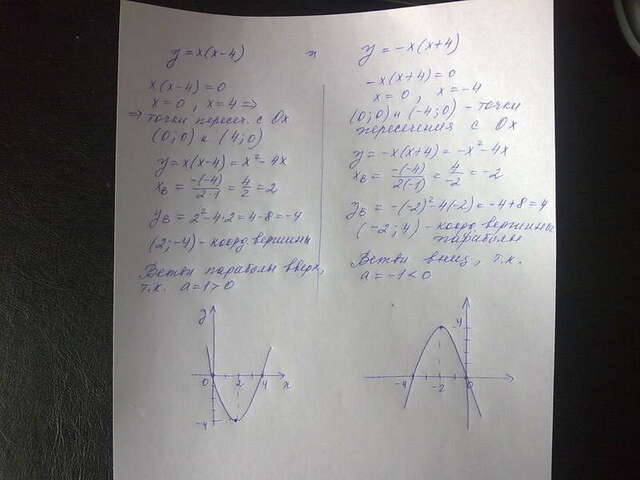 y = x(x-4) и y = -x(x+4)
x(x-4) = 0
x = 0, x = 4 ⇒
⇒ точки пересеч. с Ox
(0;0) и (4;0)
y = x(x-4) = x² - 4x
xв = -(-4)/2·1 = 4/2 = 2
yв = 2² - 4·2 = 4 - 8 = -4
(2;-4) - коорд. вершины
Ветви параболы вверх,
т.к. a = 1 > 0
y
0 2 4 x
-4
-x(x+4) = 0
x = 0, x = -4
(0;0) и (-4;0) - точки
пересечения с Ox
y = -x(x+4) = -x² - 4x
xв = -(-4)/2(-1) = 4/-2 = -2
yв = -(-2)² - 4(-2) = -4 + 8 = 4
(-2;4) - коорд. вершины
параболы
Ветви вниз, т.к.
a = -1 < 0
4
-4 -2 0